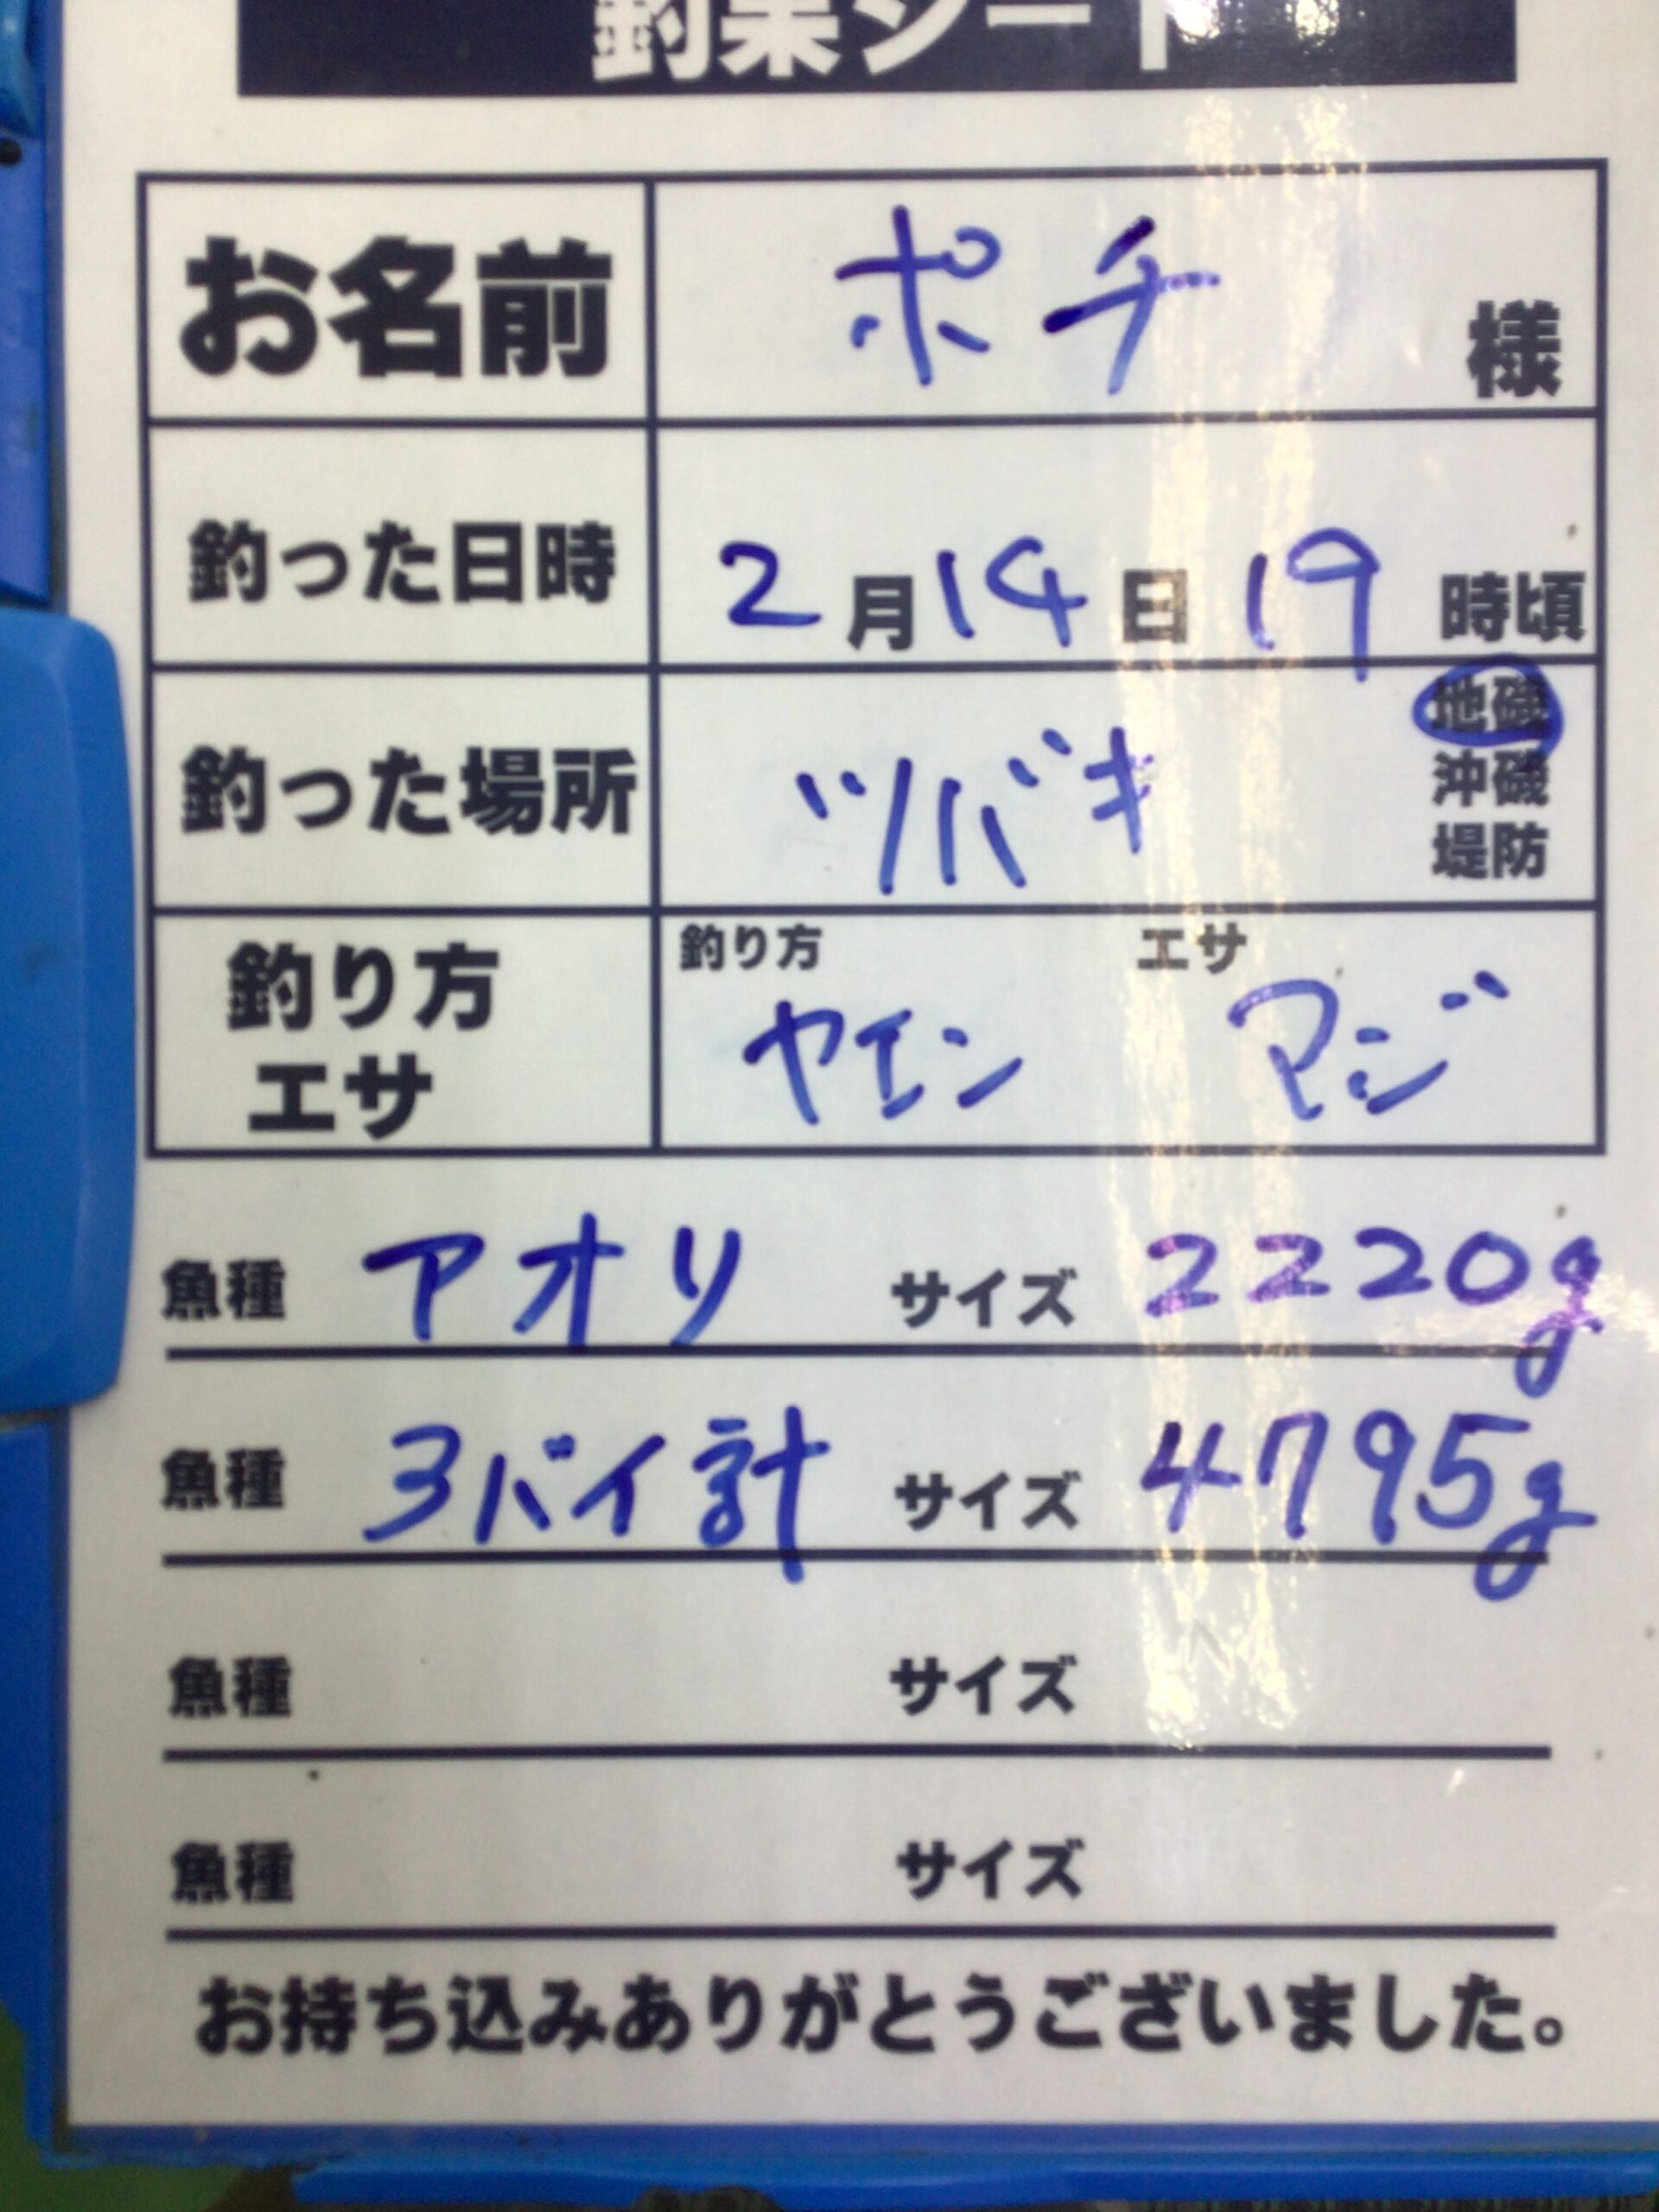 釣果シート
お名前 ポチ 様
釣った日時 2月14日 19時頃
釣った場所 ツバキ 地磯
沖磯
堤防
釣り方 エサ
釣り方 ヤエン マジ
エサ
魚種 アオリ サイズ 2220g
魚種 3バイ計 サイズ 4795g
魚種 サイズ
魚種 サイズ
お持ち込みありがとうございました。